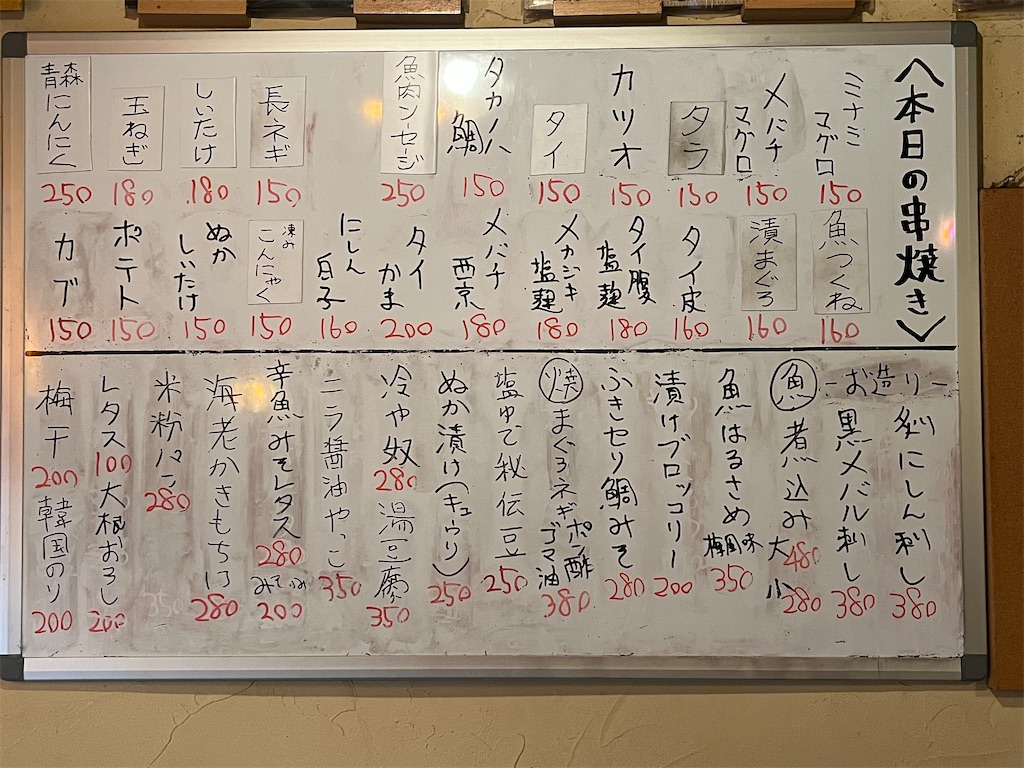 〈本日の串焼き〉
ミナミマグロ
150
メバチマグロ
150
タラ
150
カツオ
150
タイ
150
タカノハ鯛
150
魚肉ソーセージ
250
長ネギ
150
しいたけ
180
玉ねぎ
180
青森にんにく
250
魚つくね
160
漬まぐろ
160
タイ皮
160
タイ腹塩麹
180
メカジキ塩麹
180
メバチ西京
180
タイかま
200
にしん白子
160
凍みこんにゃく
150
ぬかしいたけ
150
ポテト
150
カブ
150
-お造り-
炙にしん刺し
380
黒メバル刺し
380
魚煮込み
大480
小280
魚はるさめ梅風味
350
漬けブロッコリー
200
ふきセリ鯛みそ
280
焼まぐろネギポン酢ゴマ油
380
塩ゆで秘伝豆
250
ぬか漬け(キュウリ)
250
冷や奴
280
湯豆腐
350
ニラ醤油やっこ
350
辛魚みそレタス
280
200
海老かきもち
280
米粉パン
280
350
レタス
100
大根おろし
200
梅干
200
韓国のり
200